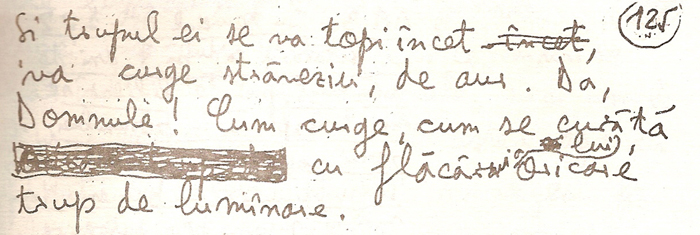 Si trupul ei se va topi încet încet, 125
va curge străveziu, de aur. Da,
Domnule! Cum curge, cum se curătă
cu flăcăruia lui, oricare
trup de lumînare.